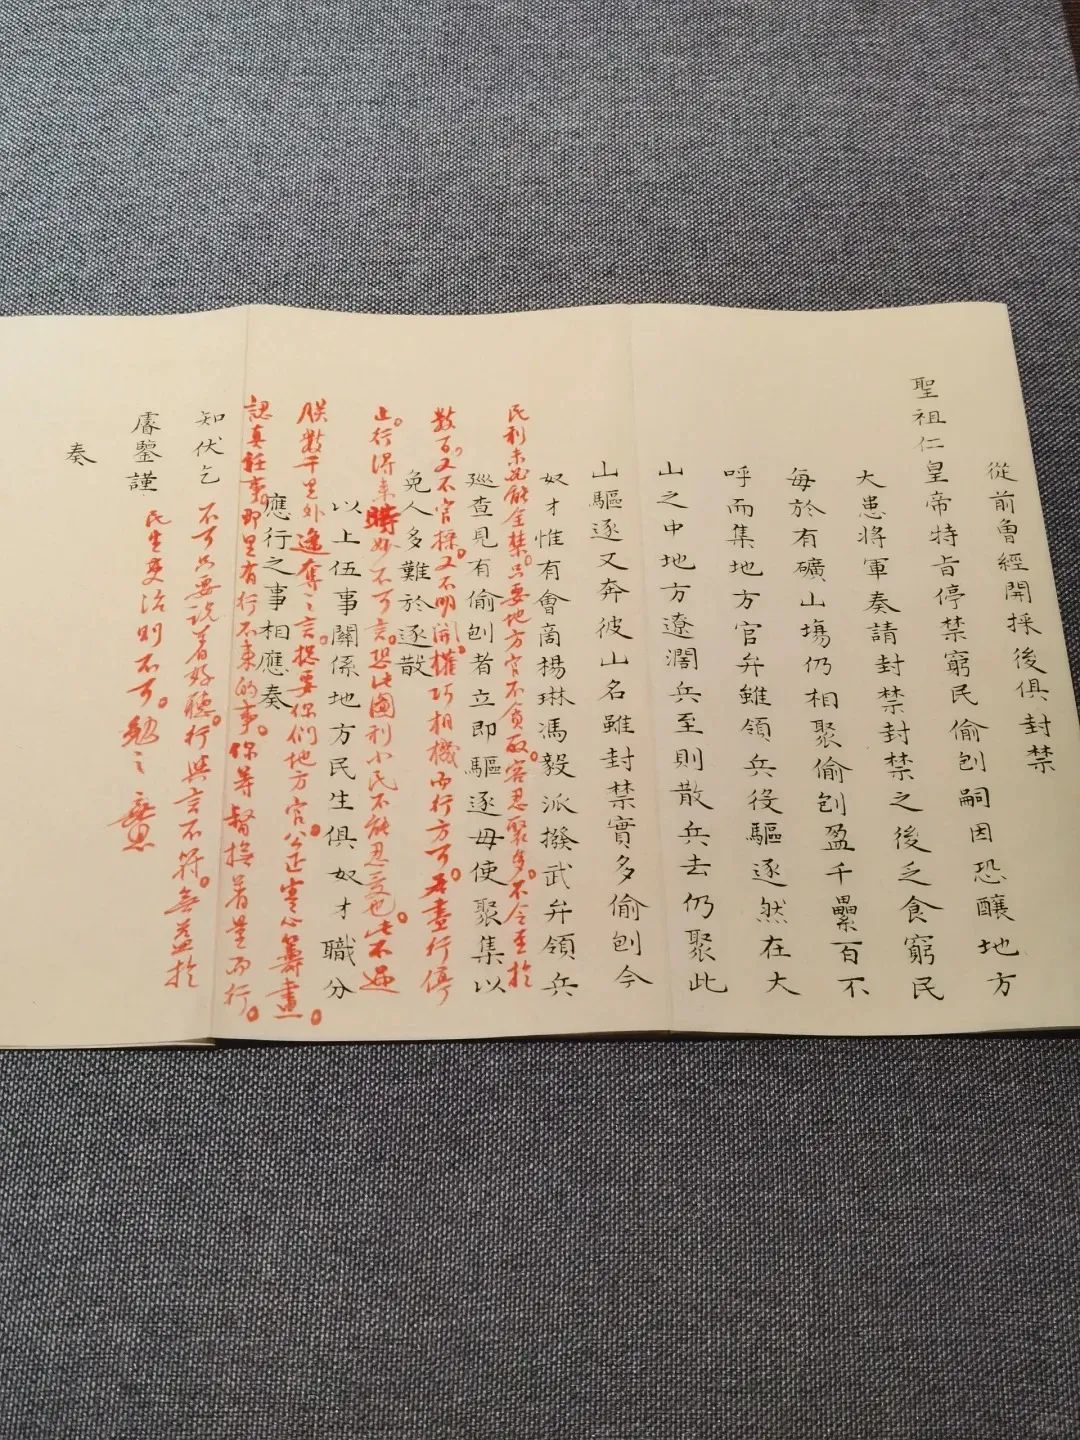 從前曾經開採後俱封禁
聖祖仁皇帝特旨停禁窮民偷刨嗣因恐釀地方
大患將軍奏請封禁封禁之後乏食窮民
每於有礦山塲仍相聚偷刨盈千累百不
呼而集地方官弁雖領兵役驅逐然在大
山之中地方遼濶兵至則散兵去仍聚此
山驅逐又奔彼山名雖封禁實多偷刨今
奴才惟有會商楊琳馮毅派撥武弁領兵
巡查見有偷刨者立即驅逐毋使聚集以
免人多難於逐散
以上伍事關係地方民生俱奴才職分
應行之事相應奏
知伏乞
睿鑒謹
奏
民利未必能全禁。只要地方官不貪取。容忍聚多。不令至於
數百。又不官採。又不明開。權巧相機而行方可。若盡行停
止。行得來時妙不可言。恐此圖利小民不能忍受也。此不過
朕數千里外遙奪之言。總要你們地方官公正寒心籌畫。
認真任事。即里有行不來的事。你等督撫着量而行。
不可只要説着好聽。行與言不符。無益於
民生吏治則不可。勉之